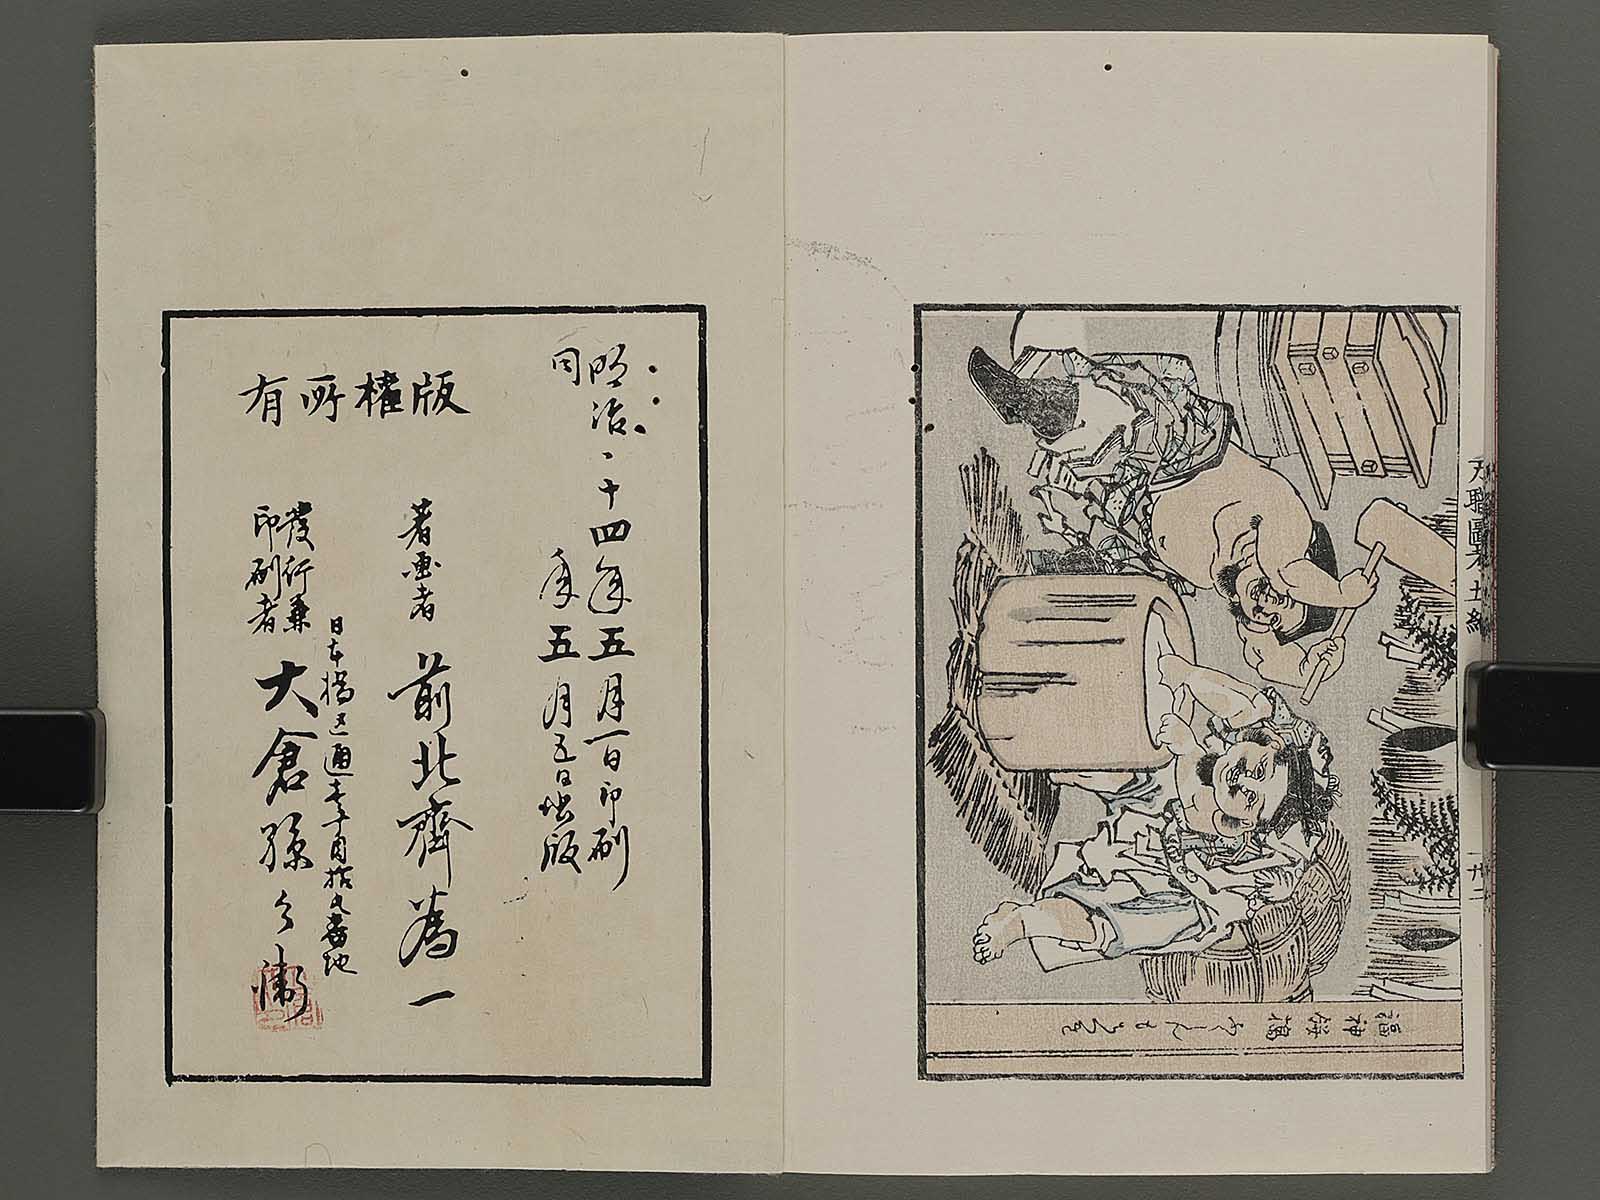 万職圖考 五編
廿二
福神餅搗
明治二十四年五月一日印刷
同年五月五日出版
版權所有
著画者 前北齋為一
日本橋區通壹丁目拾九番地
發行兼
印刷者 大倉孫兵衛